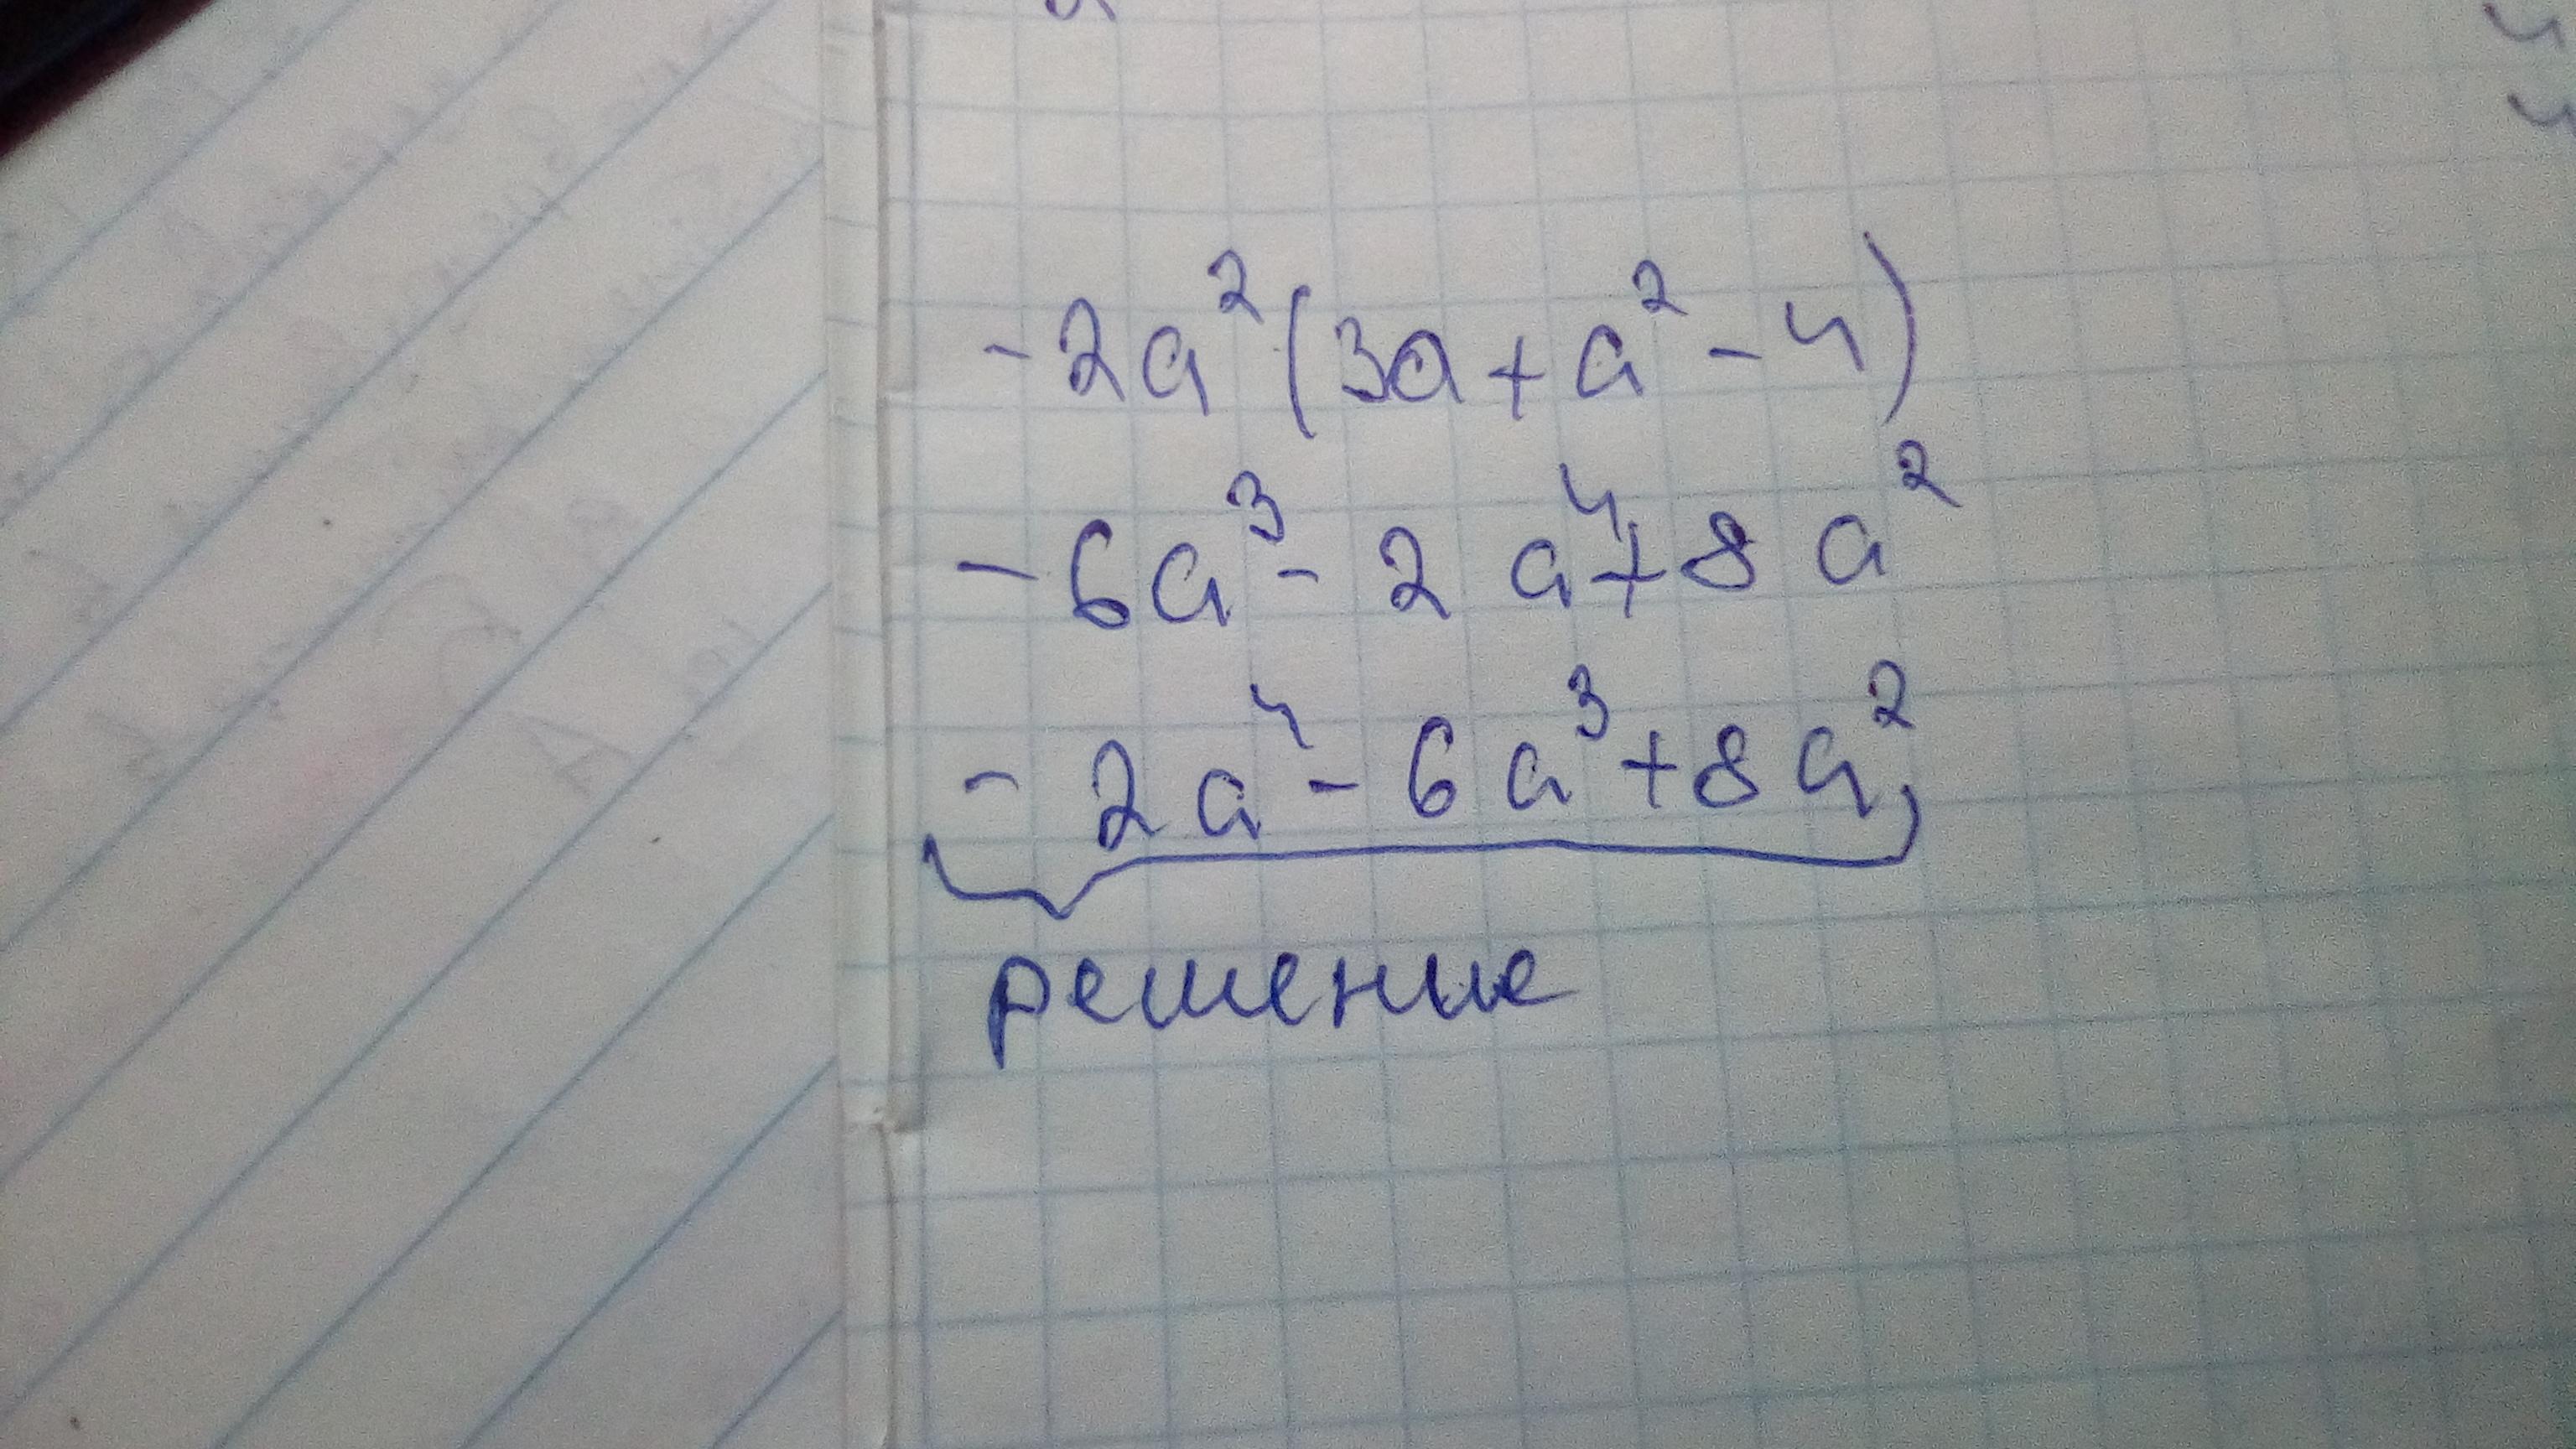 -2a²(3a+a²-4)
-6a³-2a⁴+8a²
-2a⁴-6a³+8a²
решение